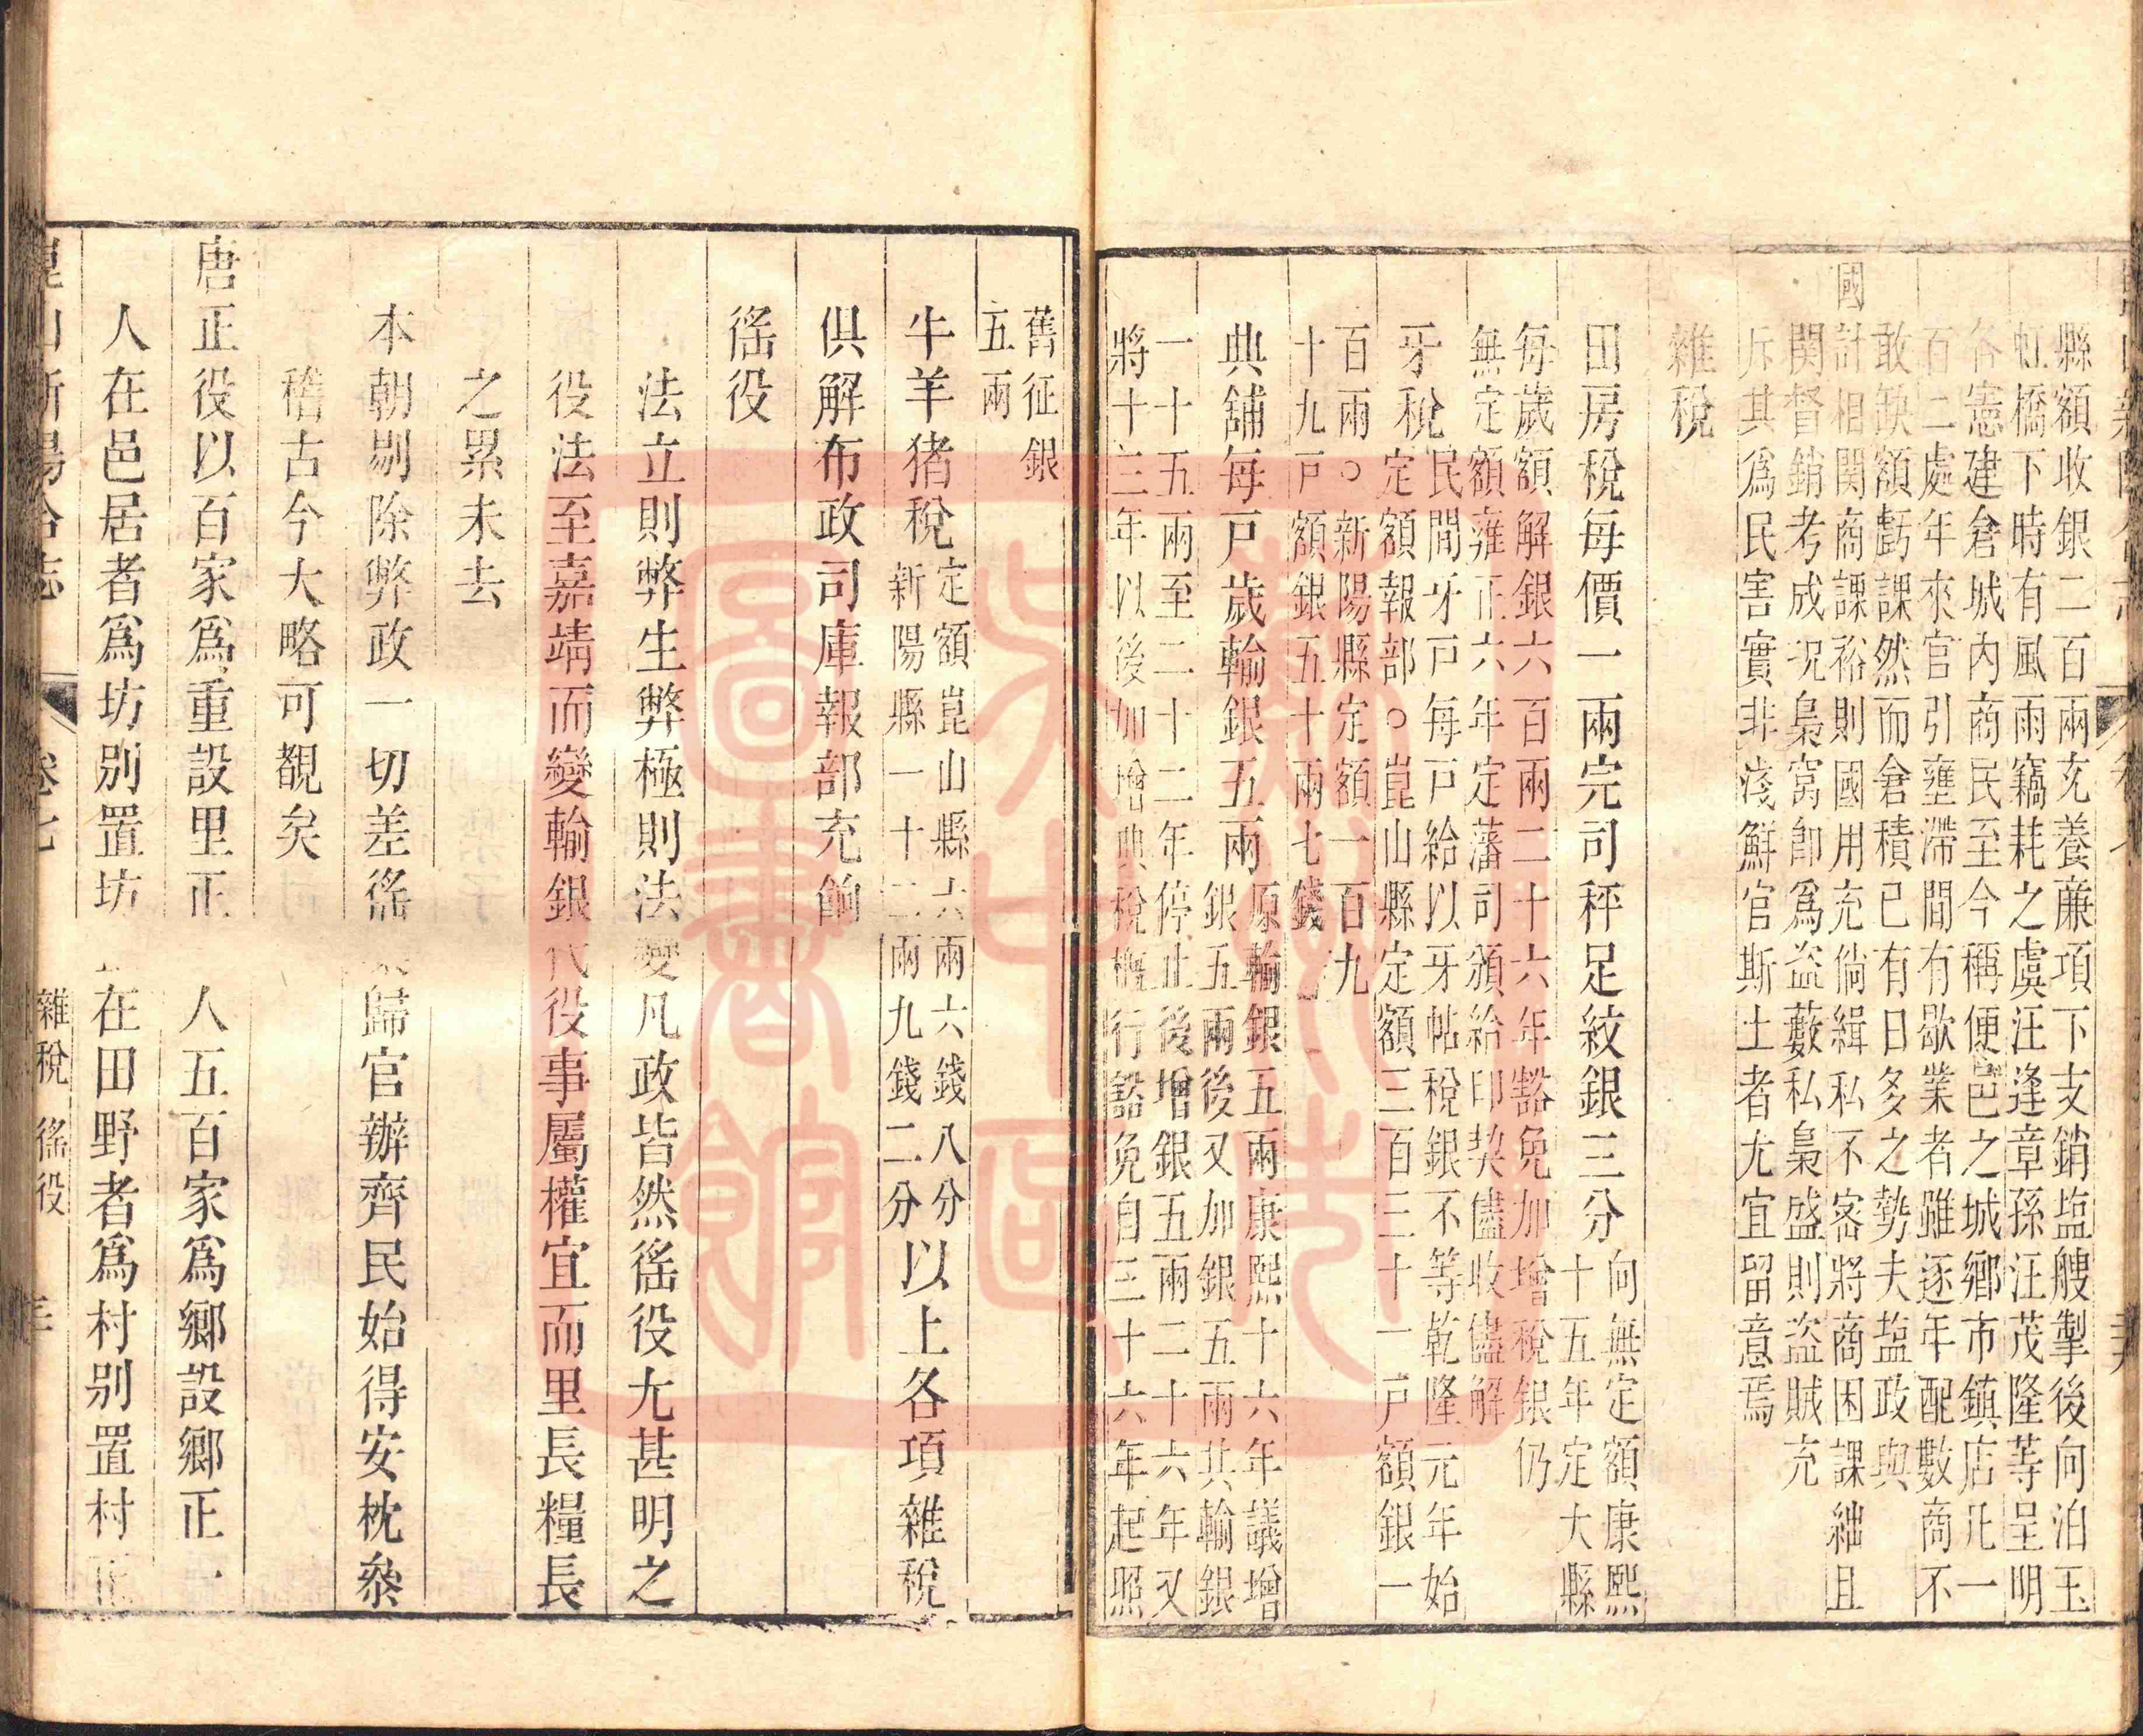 縣額收銀二百兩充養廉項下支銷塩艘掣後向泊玉
虹橋下時有風雨竊耗之虞汪逢章孫汪茂隆等呈明
各憲建倉城内商民至今稱便邑之城鄉市鎮店凡一
百二處年來官引壅滯間有歇業者雖逐年配數商不
敢缺額虧課然而倉積已有日多之勢夫塩政與
國計相関商課裕則國用充倘緝私不密將商困課絀且
関督銷考成况梟窩卽爲盗藪私梟盛則盗賊充
斥其爲民害實非淺鮮官斯土者尤宜留意焉
雜稅
田房稅每價一兩完司秤足紋銀三分向無定額康熙
十五年定大縣
每歲額解銀六百兩二十六年豁免加增稅銀仍
無定額雍正六年定藩司頒給印契儘收儘解
牙稅民間牙戸每戸給以牙帖稅銀不等乾隆元年始
定額報部○崑山縣定額三百三十一戸額銀一
百兩○新陽縣定額一百九
十九戸額銀五十兩七錢
典舖每戸歲輸銀五兩原輸銀五兩康熙十六年議增
銀五兩後又加銀五兩共輸銀
一十五兩至二十二年停止後增銀五兩二十六年又
將十三年以後加增典稅槪行豁免自三十六年起照
舊征銀
五兩
牛羊猪稅定額崑山縣六兩六錢八分
新陽縣一十二兩九錢二分以上各項雜稅
俱解布政司庫報部充餉
徭役
法立則弊生弊極則法變凡政皆然徭役尤甚明之
役法至嘉靖而變輸銀代役事屬權宜而里長糧長
之累未去
本朝剔除弊政一切差徭歸官辦齊民始得安枕叅
稽古今大略可覩矣
唐正役以百家爲重設里正人五百家爲鄉設鄉正一
人在邑居者爲坊别置坊在田野者爲村别置村正
卷七 雜稅 徭役